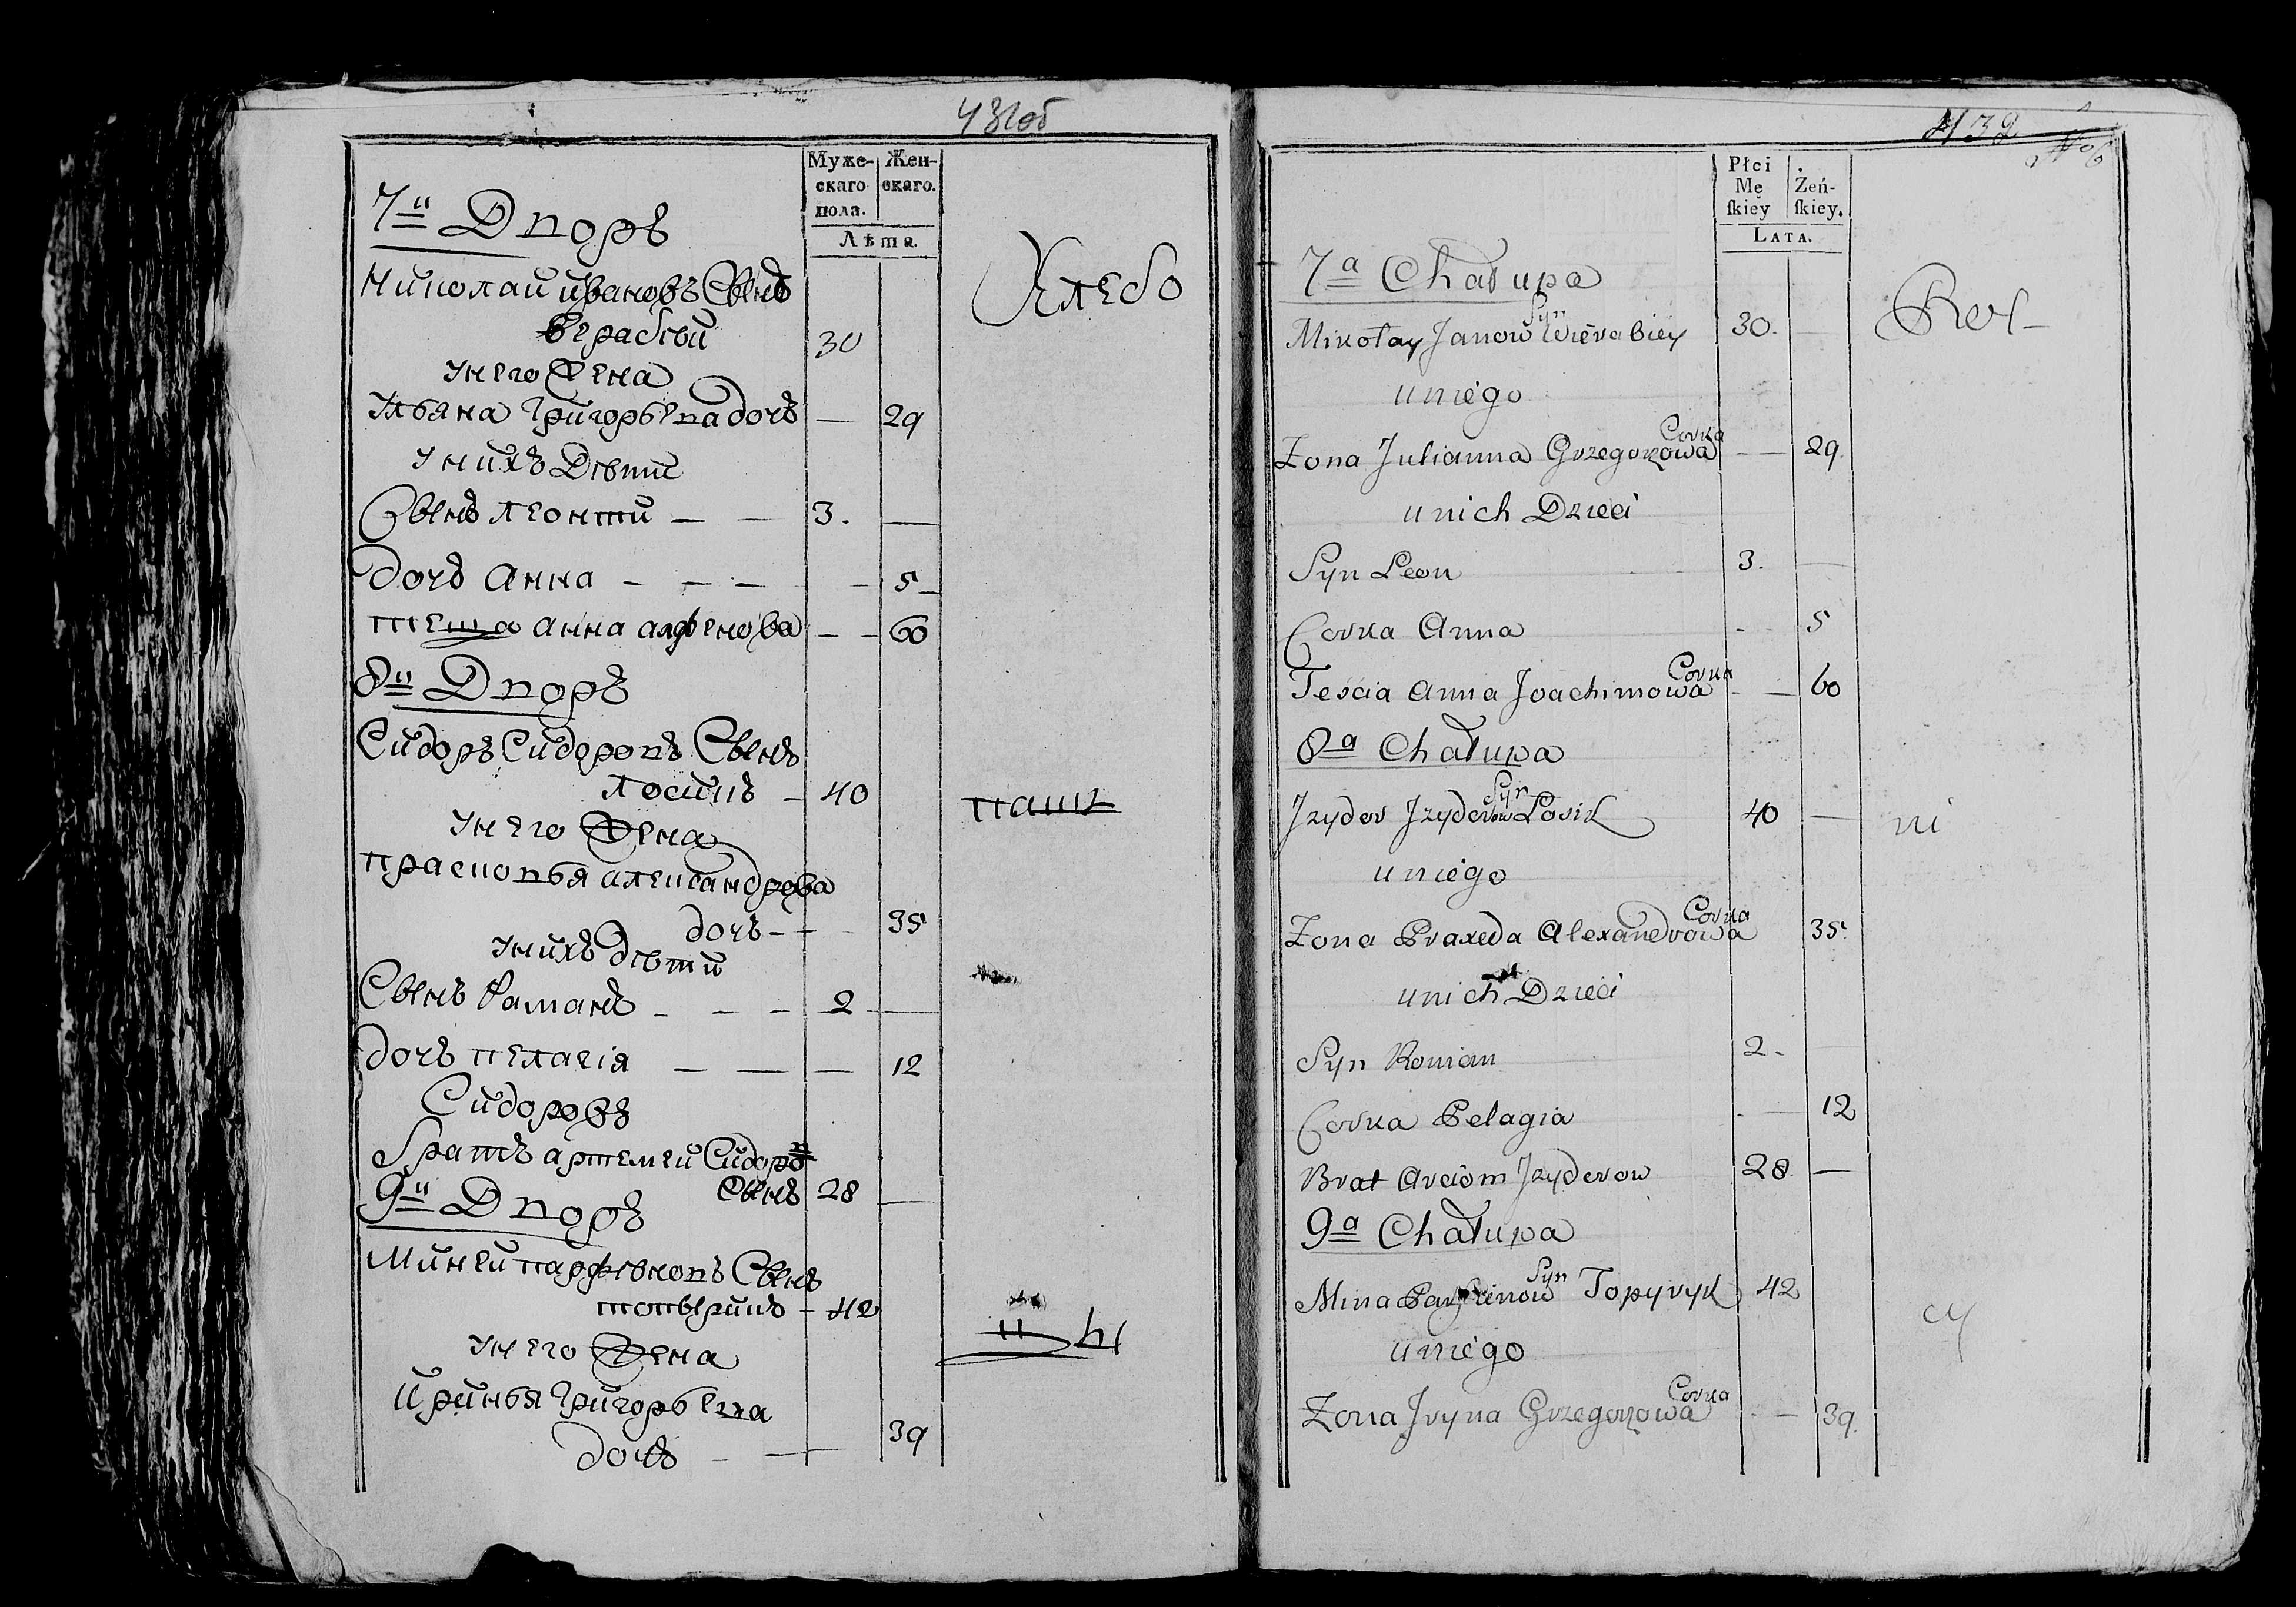 431об
Муже-
скаго
пола.
Жен-
скаго.
Лѣта.
7й Дворъ
Николай ивановъ Сынъ
Верабѣй 30
унего Жена
Ульяна Григорьевна дочъ — 29
унихъ Дѣти
Сынъ леонти — — 3. —
дочъ анна — — — — 5
теща анна алфенова — — 60
8й Дворъ
Сидоръ Сидоровъ Сынъ
Лосикъ — 40
унего Жена
прасковья александрова
дочъ — — 35
унихъ дѣти
Сынъ Раманъ — — — 2 —
дочъ пелагія — — — 12
Сидоровъ
братъ артемеи Сидоров
Сынъ 28 —
9й Дворъ
Миней парфѣновъ Сынъ
топырикъ — 42
унего Жена
Иринья Григорьевна
дочъ — — 39
Хлебо
паш
ц ы
432
Płci
Mę
ſkiey
Żeń-
ſkiey.
LATA.
7a Chałupa
Mikołay Janow Syn Wierabiey 30. —
uniego
Żona Julianna Grzegorzowa Corka — 29.
unich Dzieci
Syn Leon 3. —
Corka Anna - 5
Teścia Anna Joachimowa Corka - — 60
8a Chałupa
Jzydor Jzyderow Syn Łosik 40 —
uniego
Żona Praxeda Alexandrowa Corka 35.
unich Dzieci
Syn Roman 2. —
Corka Pelagia - — 12
Brat Arciom Jzyderow 28. —
9a Chałupa
Mina Parfienow Syn Topyryk 42
uniego
Żona Jryna Grzegorzowa Corka - — 39.
Rol-
ni
cy